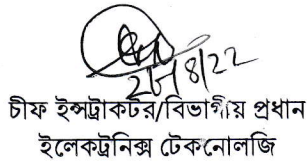 চীফ ইন্সট্রাকটর/বিভাগীয় প্রধান
ইলেকট্রনিক্স টেকনোলজি